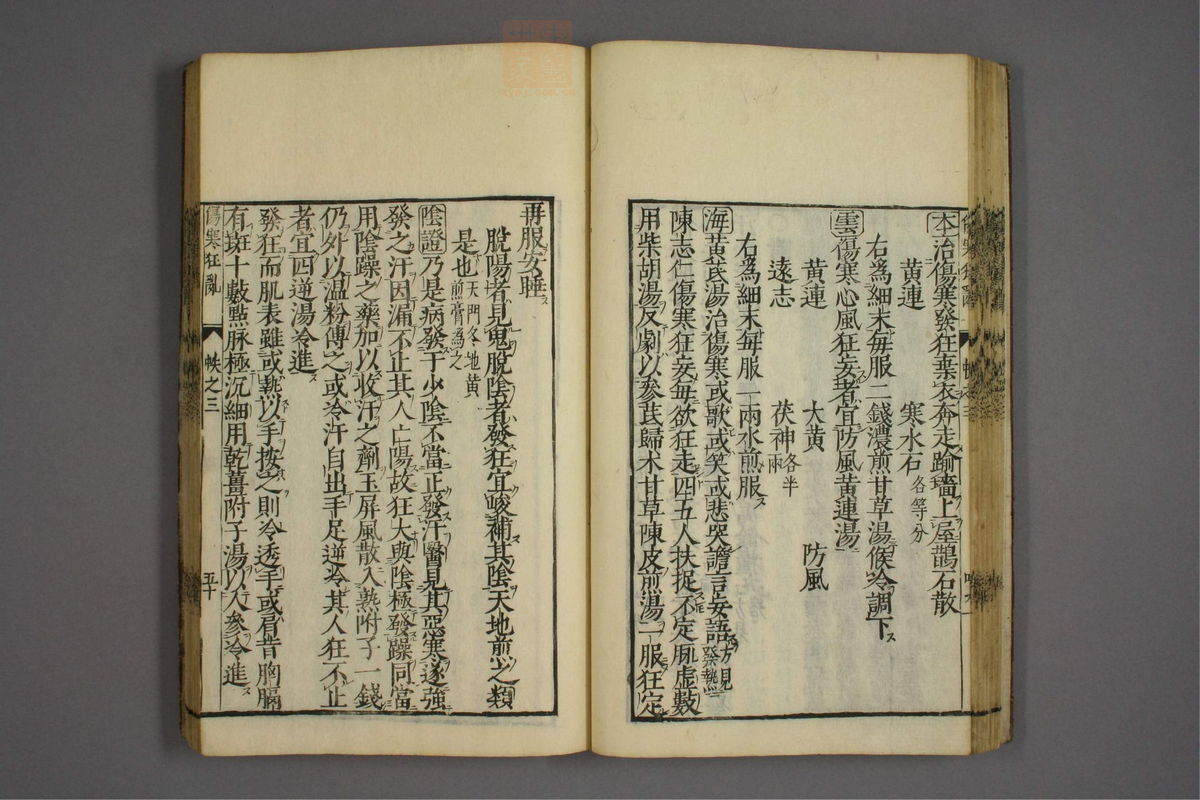 本治傷寒發狂棄衣奔走踰墻上屋鵲石散
黃連 寒水石各等分
右為細末每服二錢濃煎甘草湯候冷調下
雲傷寒心風狂妄者宜防風黃連湯
黃連 大黃 防風
遠志 茯神各半兩
右為細末每服一兩水煎服
海黃芪湯治傷寒或歌或笑或悲哭譫言妄語方見發熱
陳志仁傷寒狂妄每欲狂走四五人扶捉不定脉虛數
用柴胡湯反劇以參芪歸术甘草陳皮煎湯一服狂定
再服安睡
脫陽者見鬼脫陰者發狂宜峻補其陰天地煎之類
是也天門冬地黃煎膏為之
陰證乃是病發于少陰不當正發汗醫見其惡寒遂強
發之汗因漏不止其人亡陽故狂大典陰極發躁同當
用陰躁之藥加以收汗之劑玉屏風散入熟附子一錢
仍外以溫粉傅之或冷汗自出手足逆冷其人狂不止
者宜四逆湯冷進
發狂而肌表雖或熱以手按之則冷透手或肩背胸膈
有斑十數點脉極沉細用乾薑附子湯以人參冷進
傷寒狂亂 帙之三 五十